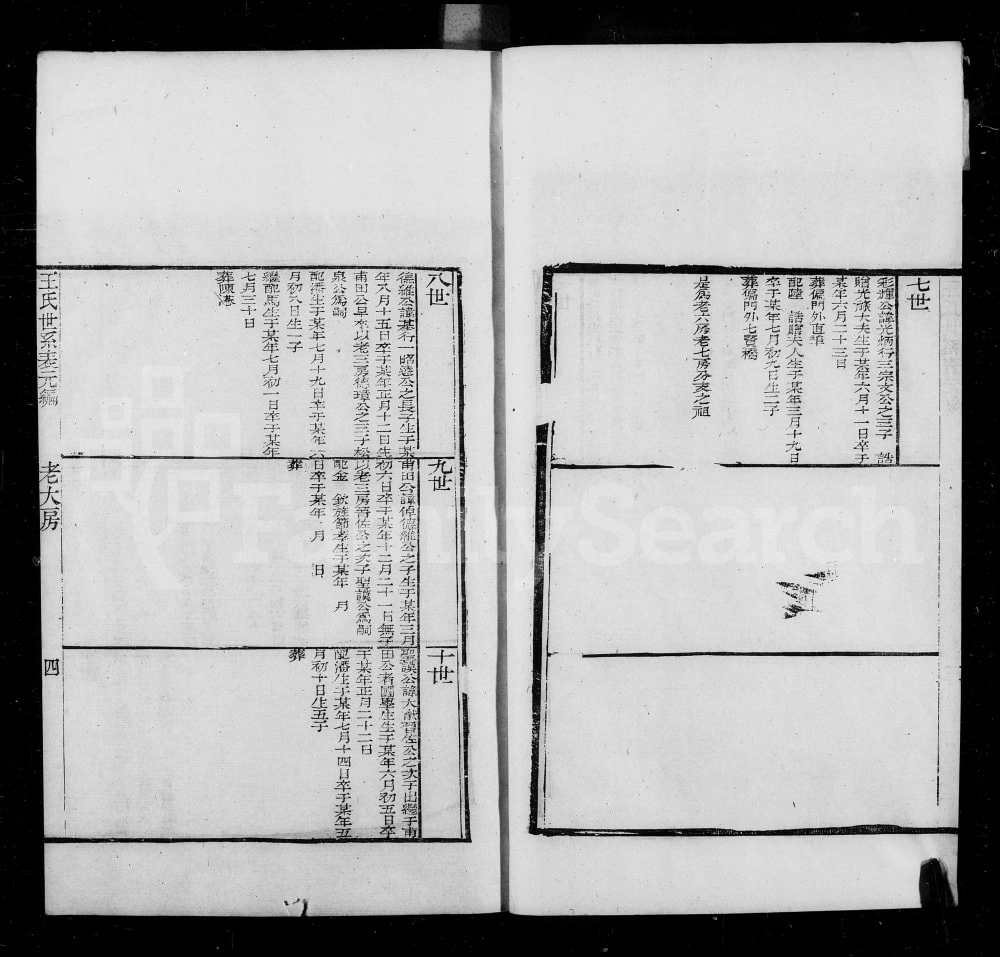 七世
彩輝公諱光炳行三宗文公之三子 誥
贈光祿大夫生于某年六月十一日卒于
某年六月二十三日
葬偏門外直年
配陸 誥贈夫人生于某年三月十九日
卒于某年七月初九日生二子
葬偏門外七賢橋
是為老六房老七房分支之祖
八世
德維公諱基行一昭遠公之長子生于某
年八月十五日卒于某年正月十二日生
甫田公早卒以老三房德璋公之三子松
泉公為嗣
配潘生于某年七月十九日卒于某年六
月初八日生一子
繼配馬生于某年七月初一日卒于某年
七月三十日
葬陳
九世
甫田公諱倬德維公之子生于某年三月
初六日卒于某年十二月二十一日無子
以老三房晉佐公之次子聖謨公為嗣
配金 欽旌節孝生于某年 月
日卒于某年 月 日
葬
十世
聖謨公諱大猷晉佐公之次子出繼于甫
田公者國學生生于某年六月初五日卒
于某年正月二十二日
配潘生于某年七月十四日卒于某年五
月初十日生五子
葬
王氏世系表元編
老大房
四
FamilySearch